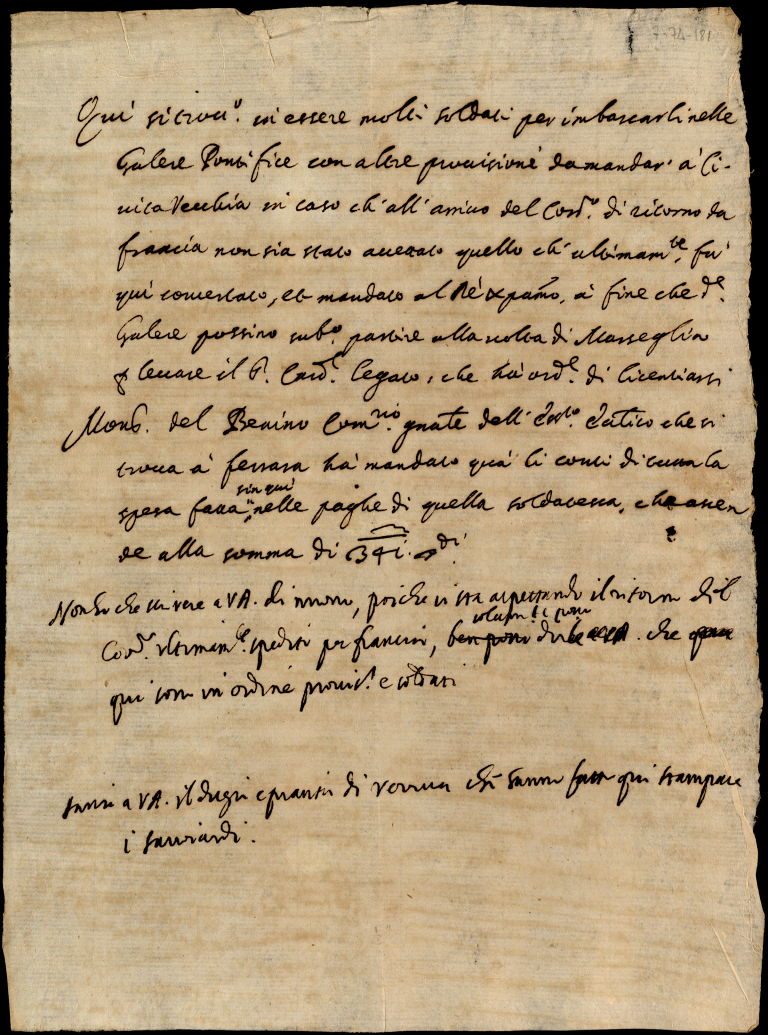 7-74-181
Qui si trou.º in essere molti soldati per imbarcarli nelle
Galere Pontificie con altre prouisioni da mandar' a Ci-
uita Vecchia in caso ch'all' arriuo del Corr.º di ritorno da
francia non sia stato accettato quello ch' ultimam.te fu
qui concertato, et mandato al Rè xpamo, a fine che d.e
Galere possino sub.º partire alla uolta di Marseglia
p leuare il S.r Card.l legato, che ha ord.e di licentiarsi
Mons. del Benino Com.rio gnale dell' Ess.to Ec'atico che si
troua a' ferrara ha' mandato qua' li conti di tutta la
spesa fatta sin qui nelle paghe di quella soldatesca, che ascen
de alla somma di 341. di
Non ho che scriuere a VA. di nuouo, poiche si sta aspettando il ritorno del
Corr.e ultimam.te spedito per francia, che
qui sono in ordine prouis.i e soldati
a VA. il di ch' hanno fatto qui stampare
i sauoiardi.